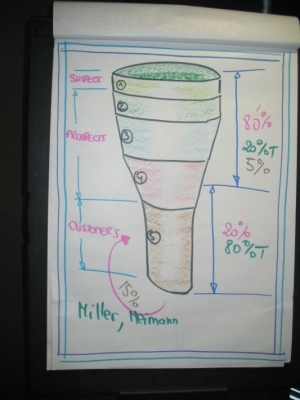 SUSPECT
1
2
PROSPECTS
3
4
CUSTOMERS
5
80%
20%T
5%
20%
80%T
15%
Miller, Heimann